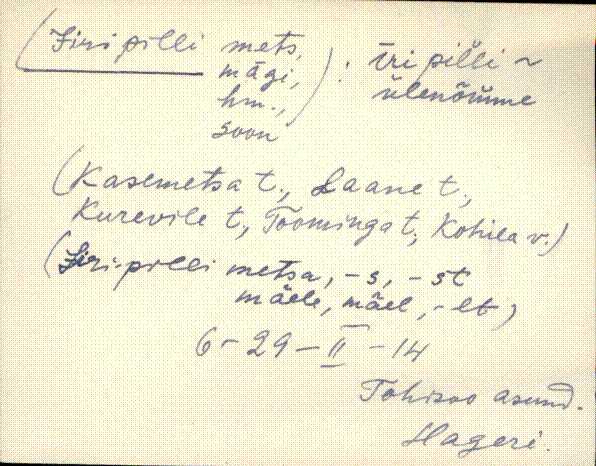 (Jüri pilli mets,
mägi,
hm.,
soon) : iri pilli ~
ülenõmme
(Kasemetsa t., Laane t.,
Kurevile t., Toominga t., Kohila v.)
(Jüri-pilli metsa, -s, -st
mäele, mäel, -lt)
6 - 29 - II - 14
Tohisoo asund.
Hageri.